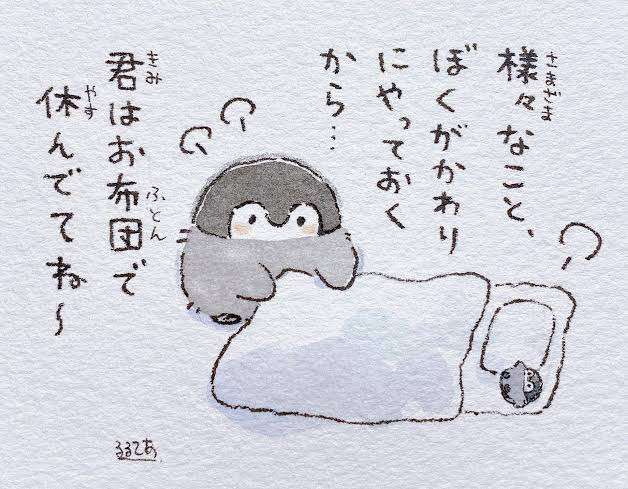 様々なこと、
ぼくがかわり
にやっておく
から…
君はお布団で
休んでてね～
さまざま
きみ
ふとん
やす
るるてあ